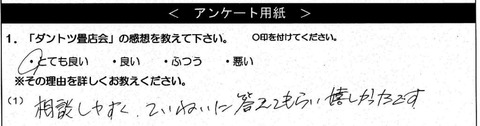 ＜ アンケート用紙 ＞
1．「ダントツ畳店会」の感想を教えて下さい。 〇印を付けてください。
・とても良い ・良い ・ふつう ・悪い
※その理由を詳しくお教えください。
(1) 相談しやすく、ていねいに答えてもらい嬉しかったです